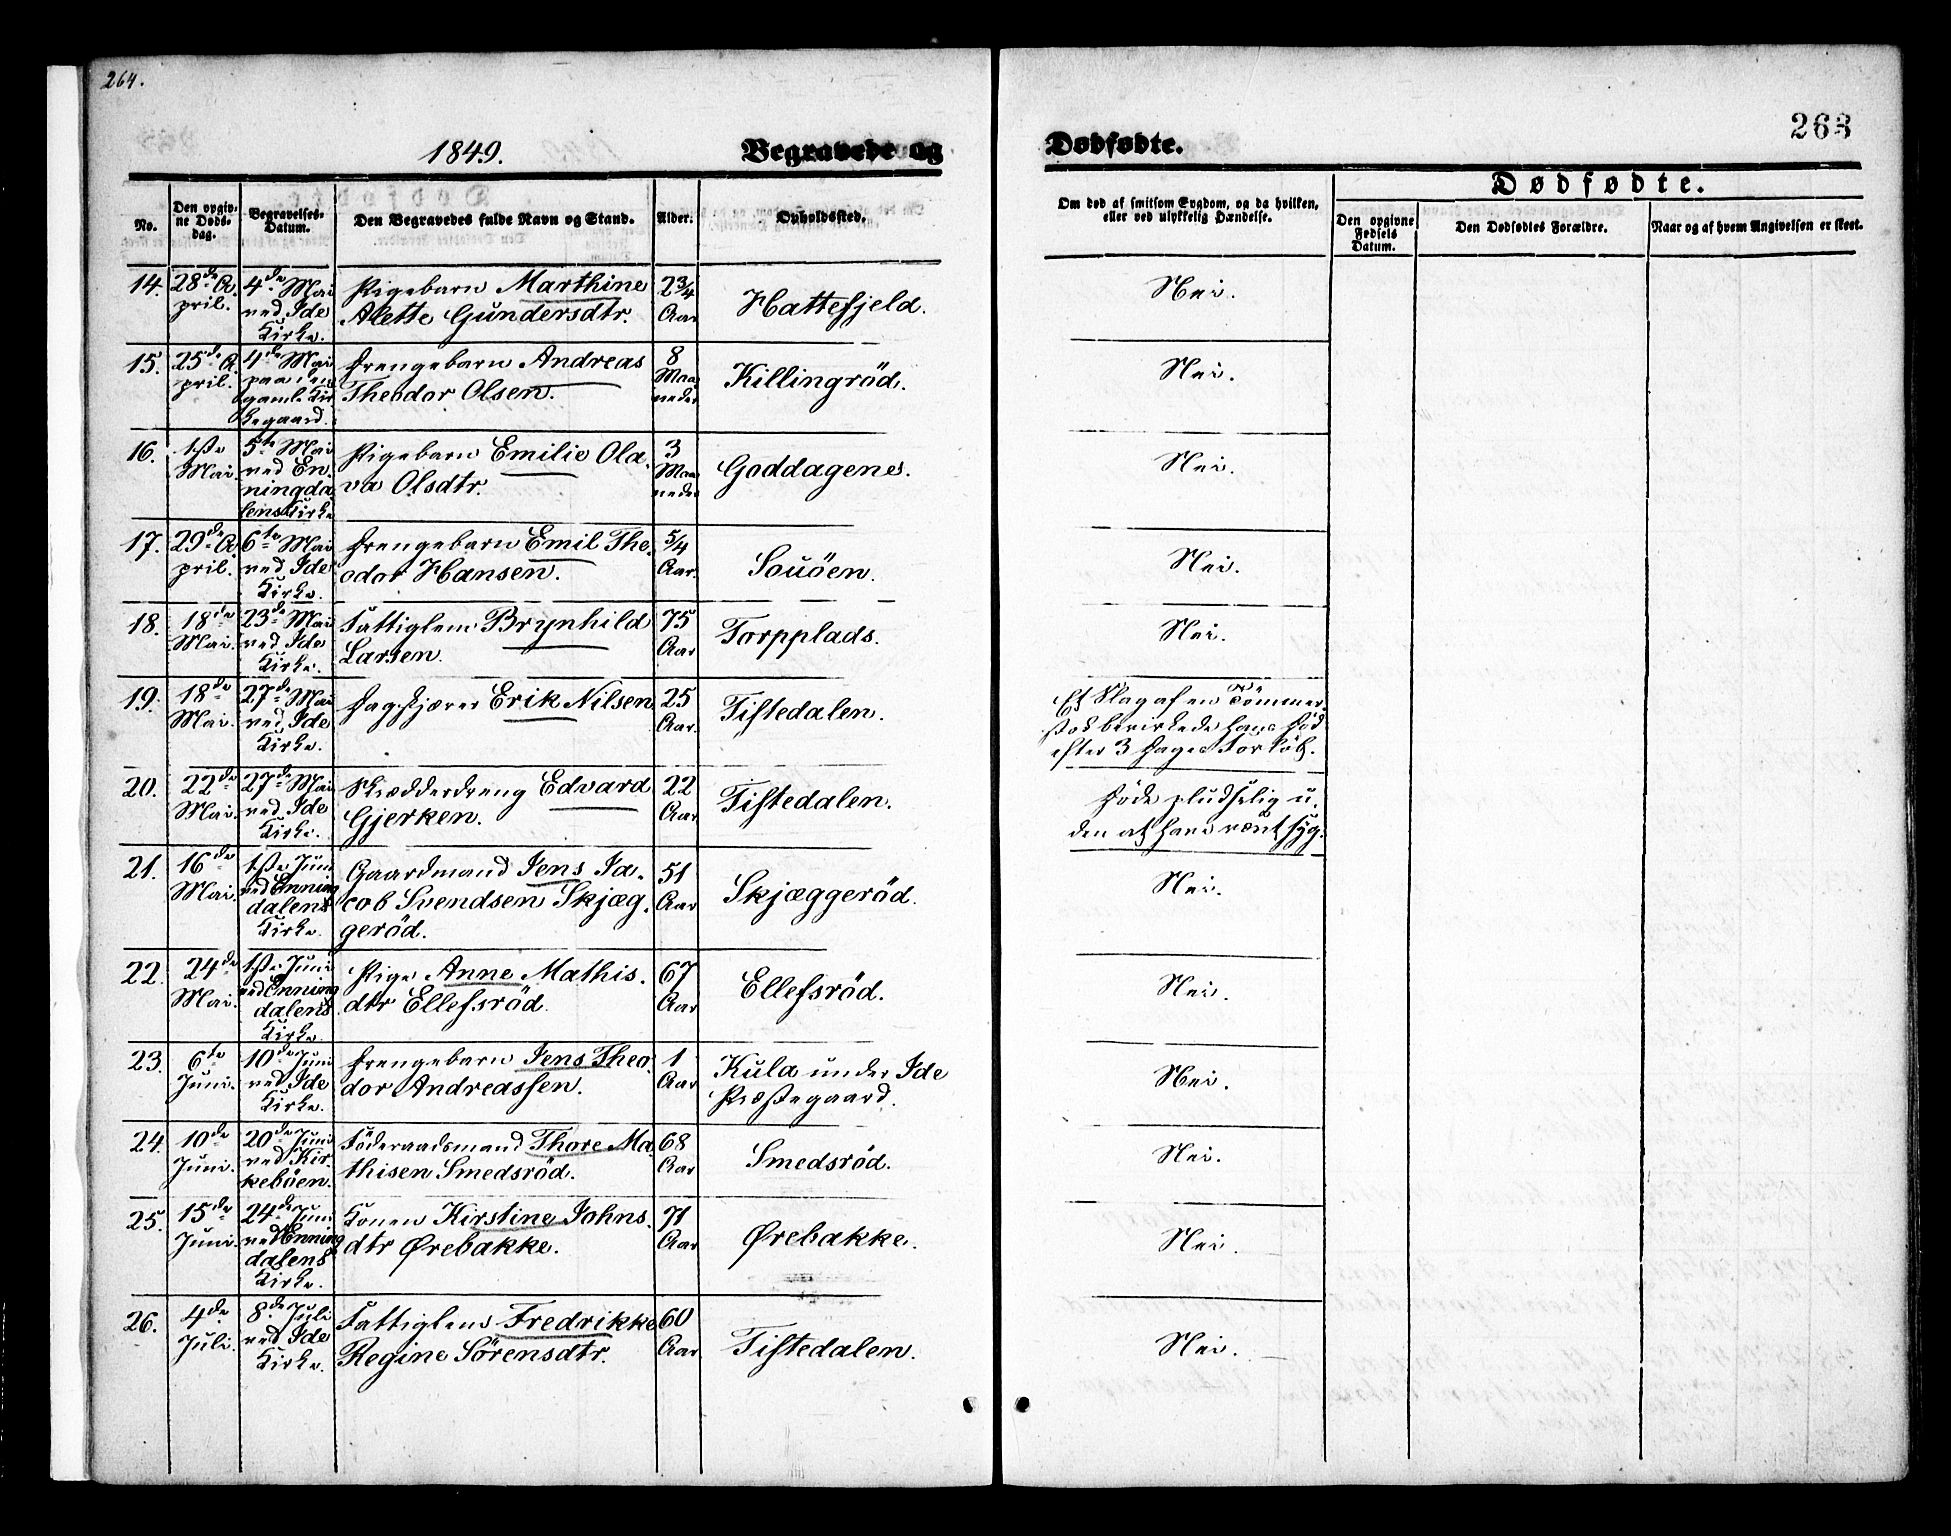 264.
268
1849.
Begravede og
Dødfødte.
No.
Den opgiv-
ne Døds-
dag.
Begravelses-
Datum.
Den Begravedes fulde Navn og Stand.
Alder.
Opholdssted.
Om død af smitsom Sygdom, og da hvilken,
eller ved ulykkelig Hændelse.
Dødfødte.
Den opgivne
Fødsels
Datum.
Den Dødfødtes Forældre.
Naar og af hvem Angivelsen er skeet.
14.
28de A
pril.
4de Mai
ved Ide
Kirke.
Pigebarn Marthine
Alette Gundersdtr.
2 3/4
Aar
Hattefjeld.
Nei.
15.
25de A
pril.
4de Mai
paa den
gamle Kir
kegaard.
Drengebarn Andreas
Theodor Olsen.
8
Maa
neder
Killingröd.
Nei.
16.
1ste
Mai.
5te Mai
ved En
ningda
lens Kirke
Pigebarn Emilie Ola-
va Olsdtr.
3
Maa
neder
Goddagenes.
Nei.
17.
29de A
pril.
6te Mai
ved Ide
Kirke.
Drengebarn Emil The-
odor Hansen.
5/4
Aar.
Souöen.
Nei.
18.
18de
Mai.
23de Mai
ved Ide
Kirke.
Fattiglem Brynhild
Larsen.
75
Aar
Torpplads.
Nei.
19.
18de
Mai.
27de Mai
ved Ide
Kirke.
Dagskjærer Erik Nilsen
25
Aar.
Tistedalen.
Et Slag af en Tömmer-
stok bevirkede hans Död
efter 3 Dages Forlöb.
20.
22de
Mai.
27de Mai
ved Ide
Kirke.
Skrædderdreng Edvard
Gjerken.
22
Aar.
Tistedalen.
Döde pludselig u-
den at have været syg.
21.
16de
Mai.
1ste Juni
ved Enning
dalens
Kirke.
Gaardmand Jens Ja-
cob Svendsen Skjæg-
geröd.
51
Aar
Skjæggeröd.
Nei.
22.
24de
Mai.
1ste Juni
ved Enning
dalens
Kirke.
Pige Anne Mathis-
dtr Ellefsröd.
67
Aar
Ellefsröd.
Nei.
23.
6te
Juni.
10de Juni
ved Ide
Kirke.
Drengebarn Jens Theo
dor Andreassen.
1
Aar
Kula under Ide
Præstegaard.
Nei.
24.
10de
Juni.
20de Juni
ved Kir
keböen.
Föderaadsmand Thore Ma
thisen Smedsröd.
68
Aar
Smedsröd.
Nei.
25.
15de
Juni.
24de Juni
ved Enning
dalens
Kirke.
Konen Kirstine Johns-
dtr Ørebakke.
71
Aar
Ørebakke.
Nei.
26.
4de
Juli.
8de Juli
ved Ide
Kirke.
Fattiglem Fredrikke
Regine Sörensdtr.
60
Aar.
Tistedalen.
Nei.